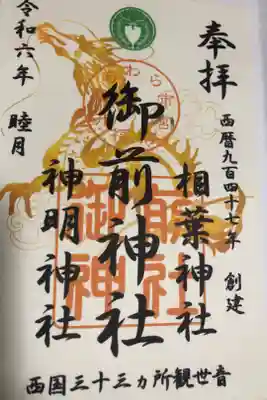 奉拝
西暦九百四十七年 創建
相葉神社
御前神社
神明神社
令和六年
睦月
西国三十三カ所観世音